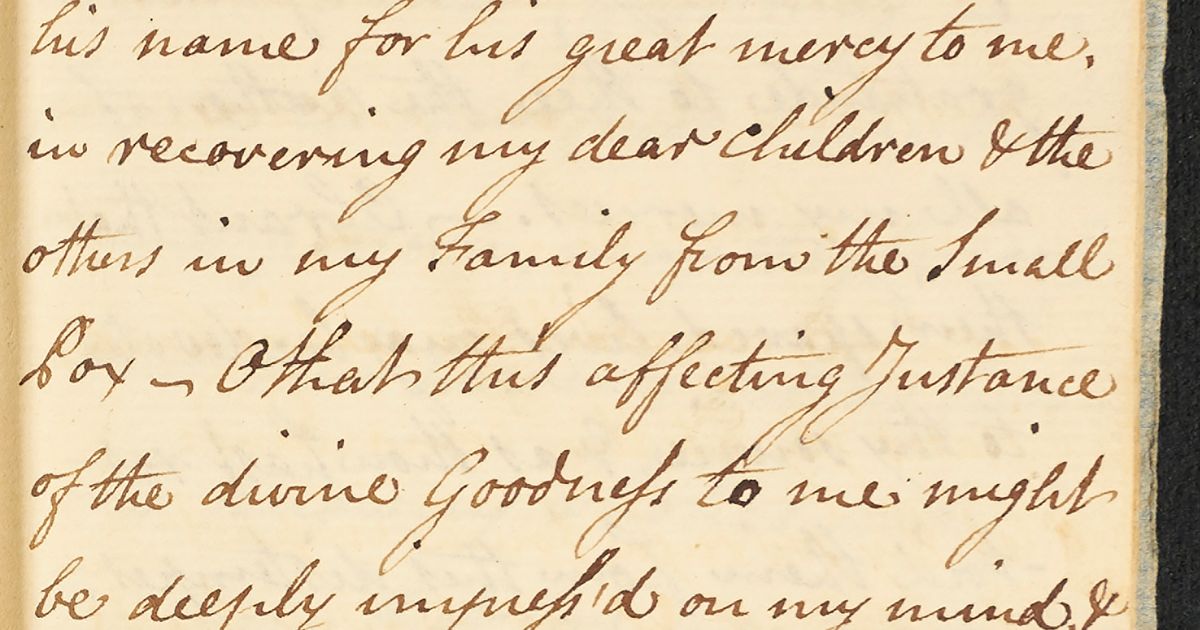 his name for his great mercy to me.
in recovering my dear Children & the
others in my Family from the Small
Pox – O that this affecting Instance
of the divine Goodneſs to me might
be deeply impreſs'd on my mind, &